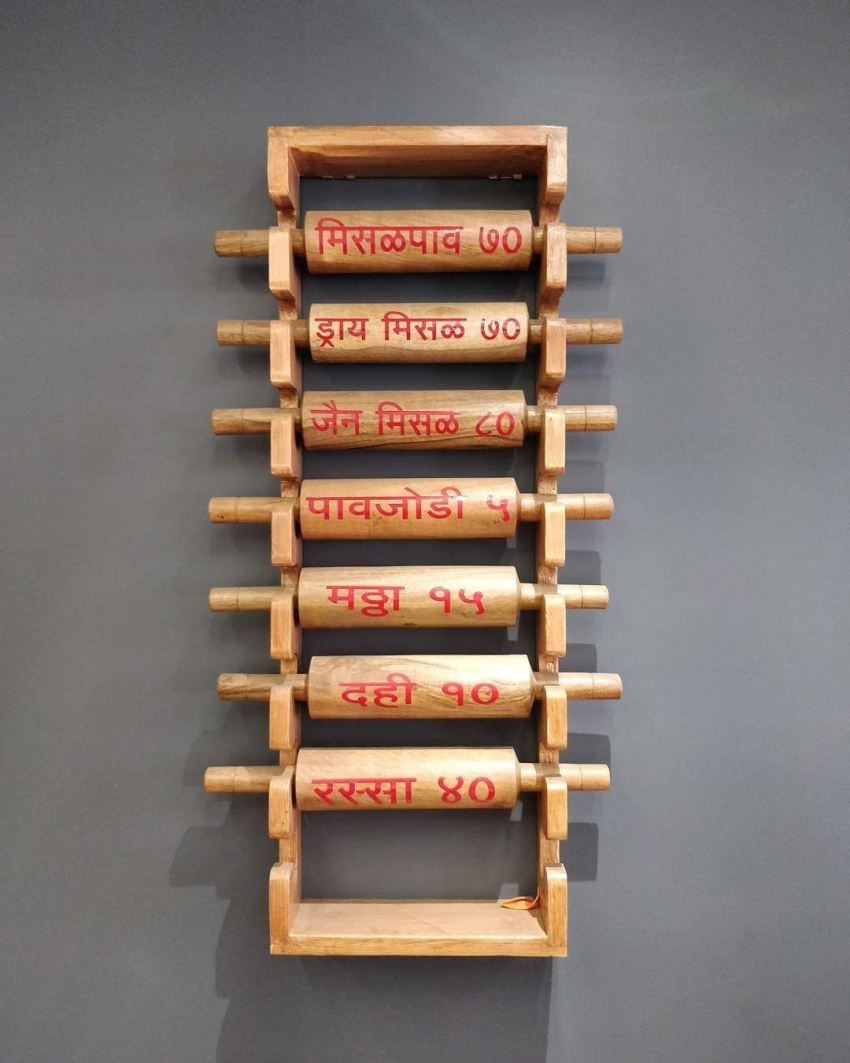 मिसळपाव ७०
ड्राय मिसळ ७०
जैन मिसळ ८०
पावजोडी ५
मठ्ठा १५
दही १०
रस्सा ४०